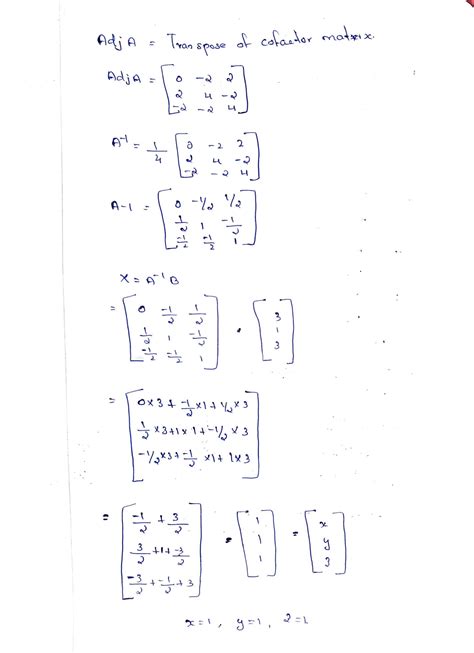 Adj A = Transpose of cofactor matrix.
Adj A = [ 0 -2 2
2 4 -2
-2 -2 4 ]
A^-1 = 1/4 [ 0 -2 2
2 4 -2
-2 -2 4 ]
A-1 = [ 0 -1/2 1/2
1/2 1 -1/2
-1/2 -1/2 1 ]
X = A^-1 B
= [ 0 -1/2 1/2
1/2 1 -1/2
-1/2 -1/2 1 ] . [ 3
1
3 ]
= [ 0×3 + -1/2 ×1 + 1/2 × 3
1/2 ×3+1×1+-1/2 × 3
-1/2×3+-1/2 ×1+ 1×3 ]
= [ -1/2 + 3/2
3/2 +1+ -3/2
-3/2 + -1/2 +3 ] = [ 1
1
1 ] = [ x
y
3 ]
x=1, y=1, 2=1